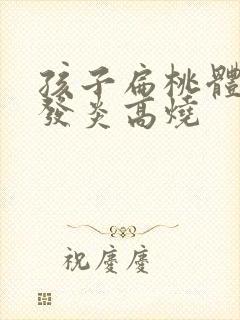 孩子扁桃體
發炎高燒
祝慶慶